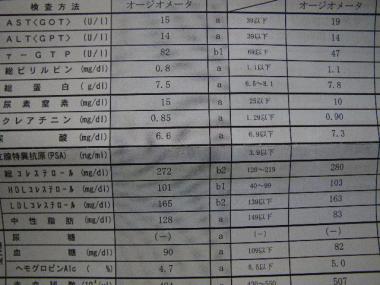 検査方法 オージオメータ オージオメータ
AST(GOT) (U/l) 15 a 39以下 19
ALT(GPT) (U/l) 14 a 39以下 14
γ－GTP (U/l) 82 b1 69以下 47
総ビリルビン (mg/dl) 0.8 a 1.1以下 1.1
総蛋白 (g/dl) 7.5 a 6.5～8.1 7.8
尿素窒素 (mg/dl) 15 a 25以下 10
クレアチニン (mg/dl) 0.85 a 1.29以下 0.90
尿酸 (mg/dl) 6.6 a 6.9以下 7.3
立腺特異抗原(PSA) (ng/ml) 3.9以下
総コレステロール (mg/dl) 272 b2 120～219 280
HDLコレステロール (mg/dl) 101 b1 40～99 103
LDLコレステロール (mg/dl) 165 b2 139以下 163
中性脂肪 (mg/dl) 128 a 149以下 83
尿糖 (－) a (－) (－)
血糖 (mg/dl) 90 a 109以下 82
ヘモグロビンA1c (%) 4.7 a 5.0
507